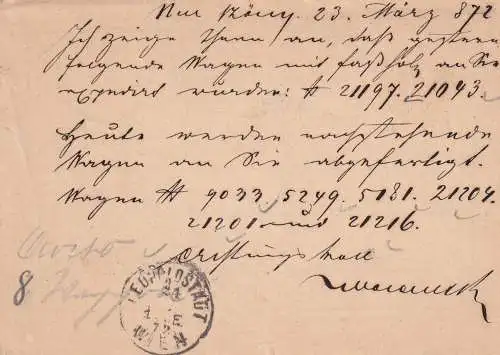 23. März 872
Ich zeige Ihnen an, daß gestern
folgende Wagen mit Faßholz an Sie
expedirt wurden: # 21197. 21043.
Heute werden nachstehende
Wagen an Sie abgefertigt.
Wagen # 9033. 5249. 5181. 21204.
21201 und 21216.
Achtungsvoll
8
LEOPOLDSTADT